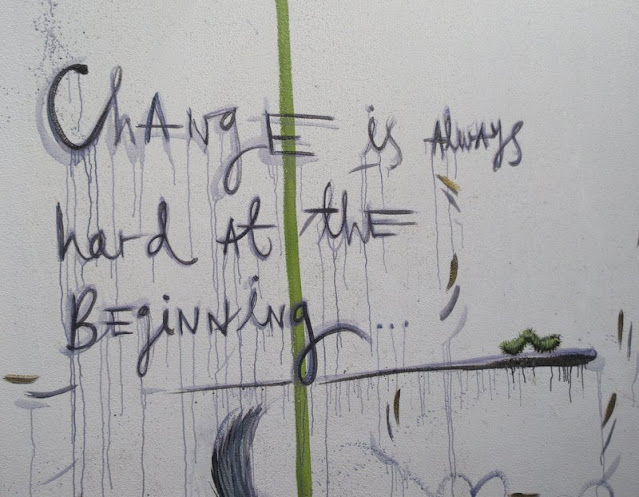 ChANgE is AlwAys
hard At thE
BEgiNNiNg...